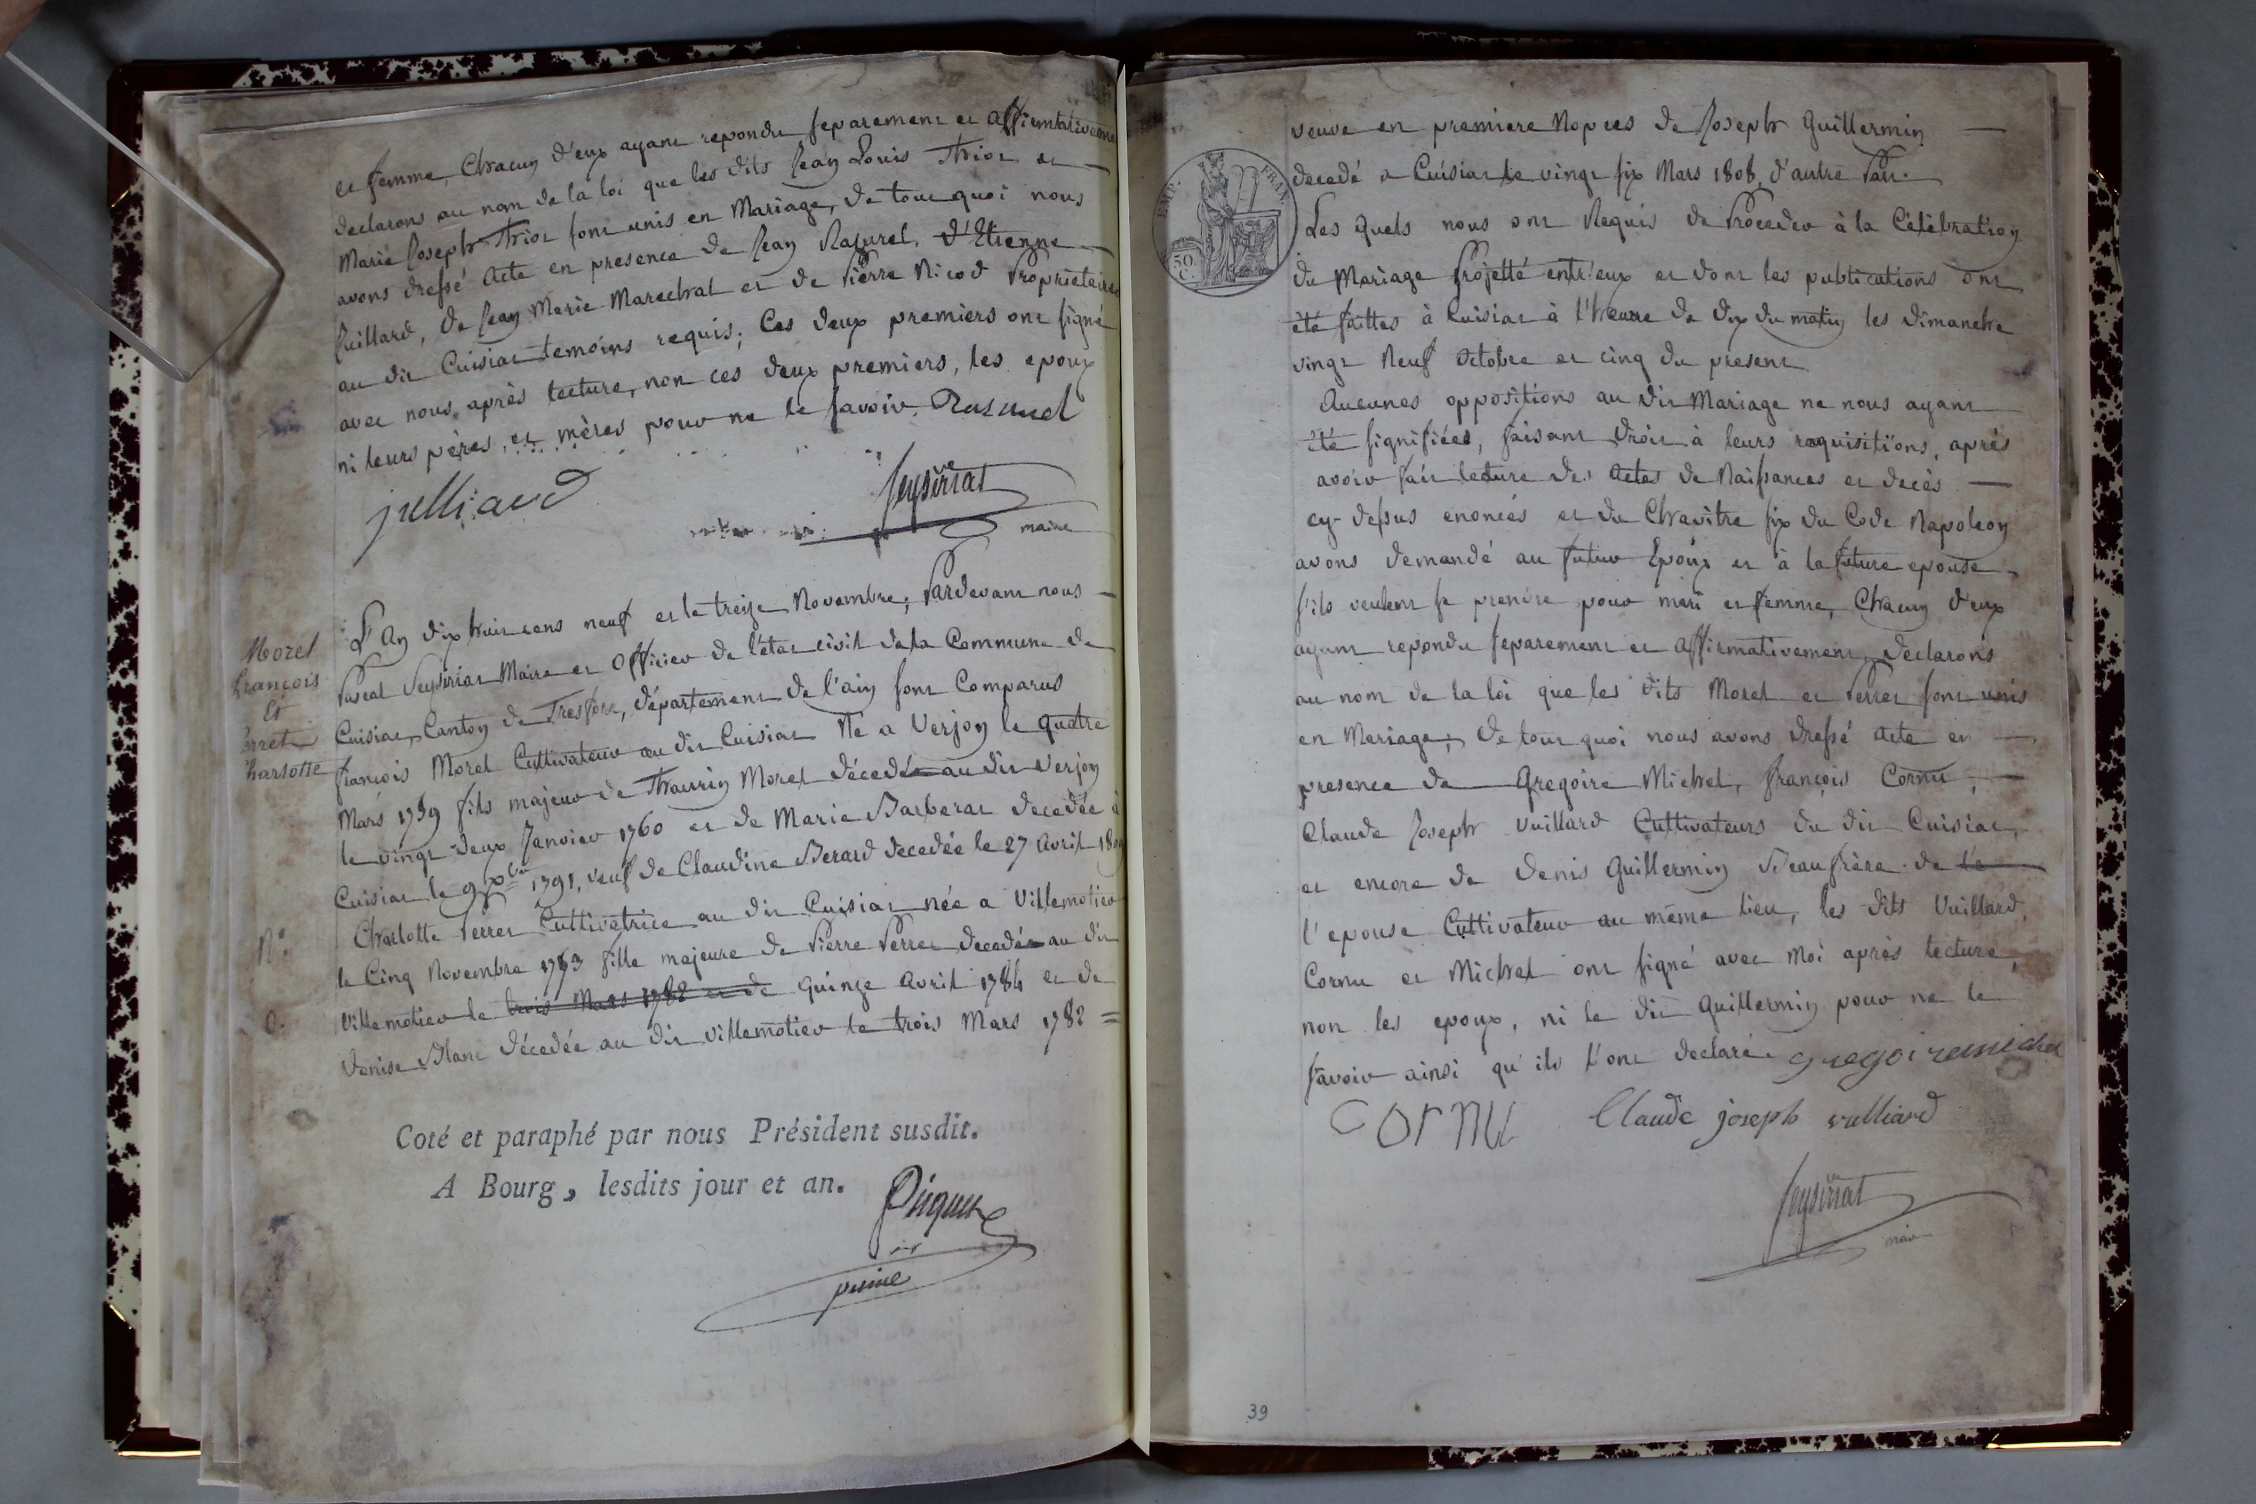 et femme, Chacun d'eux ayant repondu separement et affirmativement
declarons au nom de la loi que les dits Jean Louis Thiot et
Marie Joseph Thiot sont unis en Mariage, de tout quoi nous
avons dressé Acte en presence de Jean Rasurel, d'Etienne
Juillard, de Jean Marie Marechal et de Pierre Nicod Proprietaires
au dit Cuisiat temoins requis; Ces deux premiers ont signé
avec nous après lecture, non ces deux premiers, les epoux
ni leurs pères, et mères pour ne le savoir. Rasurel
julliard
Peysériat
maire
Morel
François
Et
Perret
Charlotte
L'An dix huit cens neuf et le treize Novembre, Pardevant nous
Pascal Peysériat Maire et Officier de l'état civil de la Commune de
Cuisiat, Canton de Treffort, département de l'ain sont Comparus
françois Morel Cultivateur au dit Cuisiat Né a Verjon le quatre
Mars 1759 fils majeur de Thaurin Morel décedé au dit Verjon
le vingt deux Janvier 1760 et de Marie Barberat decedée à
Cuisiat le 9 Xbre 1791, veuf de Claudine Berard decedée le 27 Avril
Charlotte Perret Cultivatrice au dit Cuisiat née a Villemotier
le Cinq Novembre 1763 fille majeure de Pierre Perret decedé au dit
Villemotier le trois Mars 1782 et de quinze avril 1784 et de
Denise Blanc décedée au dit Villemotier le trois Mars 1782 =
N°
Coté et paraphé par nous Président susdit.
A Bourg, lesdits jour et an.
veuve en premiere Nopces de Joseph Guillermin
decedé a Cuisiat le vingt six Mars 1808, d'autre Part.
EMP. FRAN.
50 C.
Les quels nous ont Requis de Proceder à la Célébration
du Mariage Projetté entr'eux et dont les publications ont
été faittes à Cuisiat à l'heure de dix du matin les dimanche
vingt Neuf Octobre et cinq du present
Aucunes oppositions au dit Mariage ne nous ayant
été signifiées, faisant droit à leurs requisitions, après
avoir fait lecture des Actes de Naissances et decès
cy-dessus enoncés et du Chapitre six du Code Napoleon
avons demandé au futur Epoux et à la future epouse
s'ils veulent se prendre pour mari et femme, Chacun d'eux
ayant repondu separement et affirmativement, declarons
au nom de la loi que les dits Morel et Perret sont unis
en Mariage; de tout quoi nous avons dressé Acte en
presence de Gregoire Michel, françois Cornu,
Claude Joseph Vuillard Cultivateurs du dit Cuisiat,
et encore de Denis Guillermin Beaufrère de le
l'epouse Cultivateur au même lieu, les dits Vuillard,
Cornu et Michel ont signé avec Moi après lecture,
non les epoux, ni le dit Guillermin pour ne le
savoir ainsi qu'ils l'ont declaré. gregoire michel
cornu Claude joseph vulliard
Peysériat
39